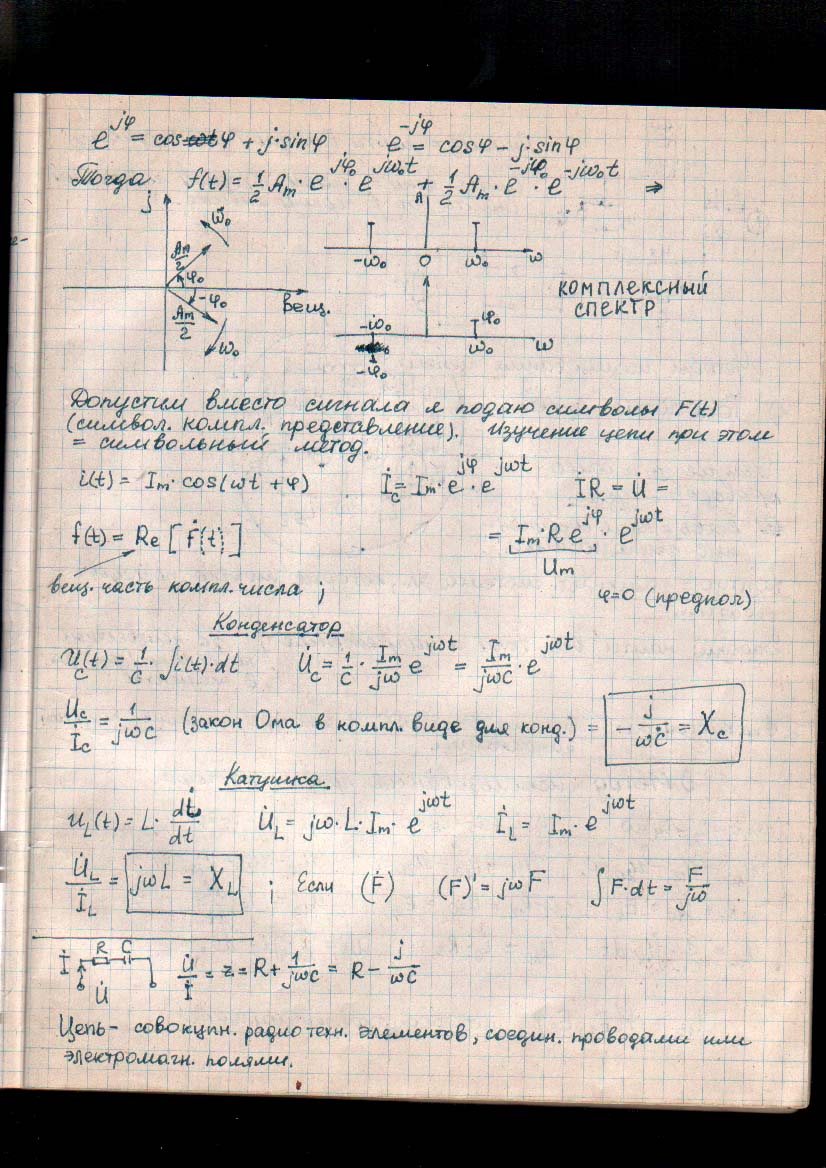 e^{jφ} = cos φ + j·sinφ    e^{-jφ} = cosφ - j·sinφ
Тогда f(t) = 1/2 Am · e^{jφ₀} · e^{jω₀t} + 1/2 Am · e^{-jφ₀} · e^{-jω₀t} ⇒
j    ω₀    A
Am/2    φ₀    -ω₀    0    ω₀    ω
-φ₀    Вещ.    КОМПЛЕКСНЫЙ
Am/2    СПЕКТР
ω₀    -ω₀    φ₀    ω₀    ω
-φ₀
Допустим вместо сигнала я подаю символы F(t)
(символ. компл. представление). Изучение цепи при этом
= символьный метод.
i(t) = Im · cos(ωt + φ)    İc = Im · e^{jφ} · e^{jωt}    İR = U̇ =
f(t) = Re [Ḟ(t)]    = Im·R e^{jφ} · e^{jωt}
Um
вещ. часть компл. числа ;    φ=0 (предпол)
Конденсатор
Uc(t) = 1/C · ∫i(t)·dt    U̇c = 1/C · Im/jω e^{jωt} = Im/jωC · e^{jωt}
U̇c/İc = 1/jωC (закон Ома в компл. виде для конд.) = -j/ωC = Xc
Катушка
UL(t) = L· di/dt    U̇L = jω·L·Im · e^{jωt}    İL = Im · e^{jωt}
U̇L/İL = jωL = XL ; Если (Ḟ)    (F)' = jωF    ∫F·dt = F/jω
İ    R    C    U̇    U̇/İ = z = R + 1/jωC = R - j/ωC
Цепь - совокцпн. радиотехн. элементов, соедин. проводами или
электромагн. полями.